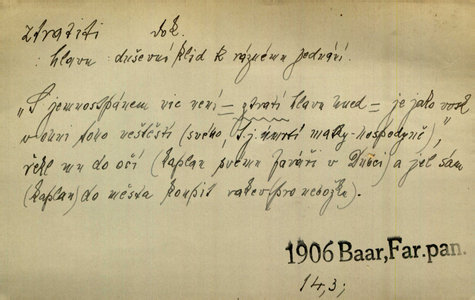 ztratiti dok.
: hlavu : duševní klid k různému jednání.
„S jemnostpánem nic není = ztratí hlavu hned = je jako vosk
v ohni toho neštěstí (svého, t. j. úmrtí matky-hospodyně),"
řekl mu do očí (kaplan svému faráři v Dubci) a jel sám
(kaplan) do města koupit rakev (pro nebožku).
1906 Baar, Far. pan.
14,3;